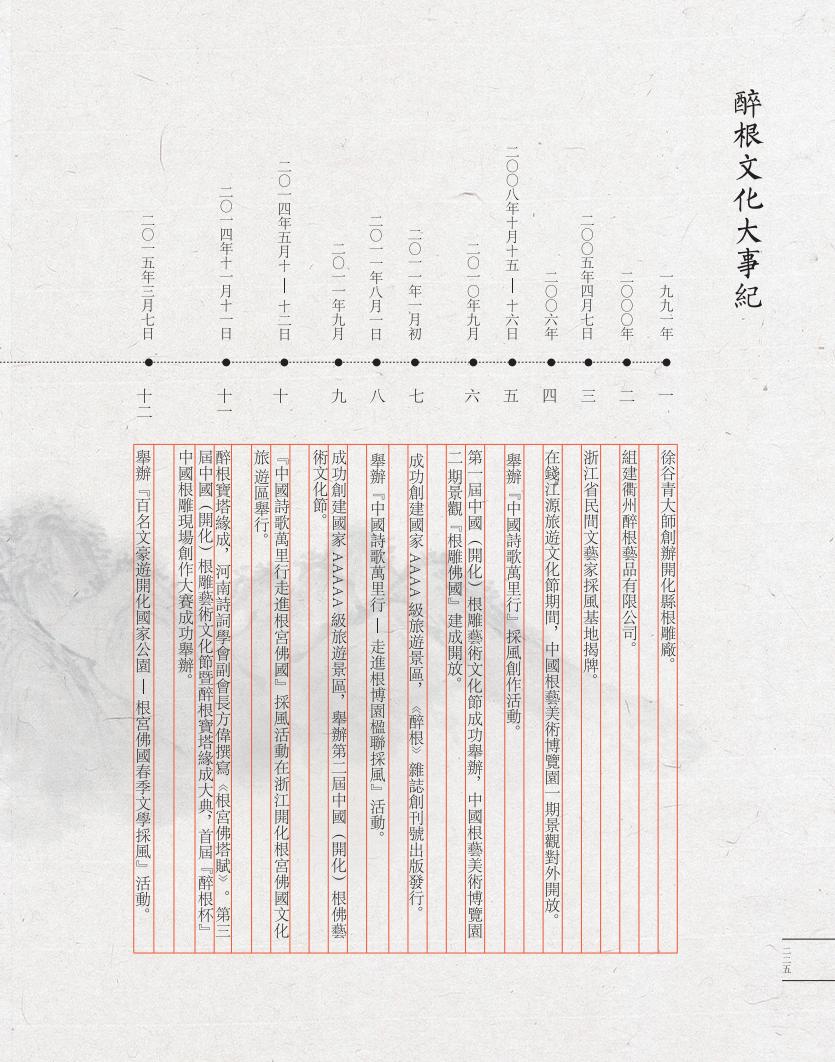 醉根文化大事紀
一九九一年
一
徐谷青大師創辦開化縣根雕廠。
二〇〇〇年
二
組建衢州醉根藝品有限公司。
二〇〇五年四月七日
三
浙江省民間文藝家採風基地揭牌。
二〇〇六年
四
在錢江源旅遊文化節期間，中國根藝美術博覽園一期景觀對外開放。
二〇〇八年十月十五 — 十六日
五
舉辦『中國詩歌萬里行』採風創作活動。
二〇一〇年九月
六
第一屆中國（開化）根雕藝術文化節成功舉辦，中國根藝美術博覽園
二期景觀『根雕佛國』建成開放。
二〇一一年一月初
七
成功創建國家 AAAA 級旅遊景區，《醉根》雜誌創刊號出版發行。
二〇一一年八月一日
八
舉辦『中國詩歌萬里行 — 走進根博園楹聯採風』活動。
二〇一一年九月
九
成功創建國家 AAAAA 級旅遊景區，舉辦第二屆中國（開化）根佛藝
術文化節。
二〇一四年五月十 — 十二日
十
『中國詩歌萬里行走進根宮佛國』採風活動在浙江開化根宮佛國文化
旅遊區舉行。
二〇一四年十一月十一日
十一
醉根寶塔緣成，河南詩詞學會副會長方偉撰寫《根宮佛塔賦》。第三
屆中國（開化）根雕藝術文化節暨醉根寶塔緣成大典，首屆『醉根杯』
中國根雕現場創作大賽成功舉辦。
二〇一五年三月七日
十二
舉辦『百名文豪遊開化國家公園 — 根宮佛國春季文學採風』活動。
二二五